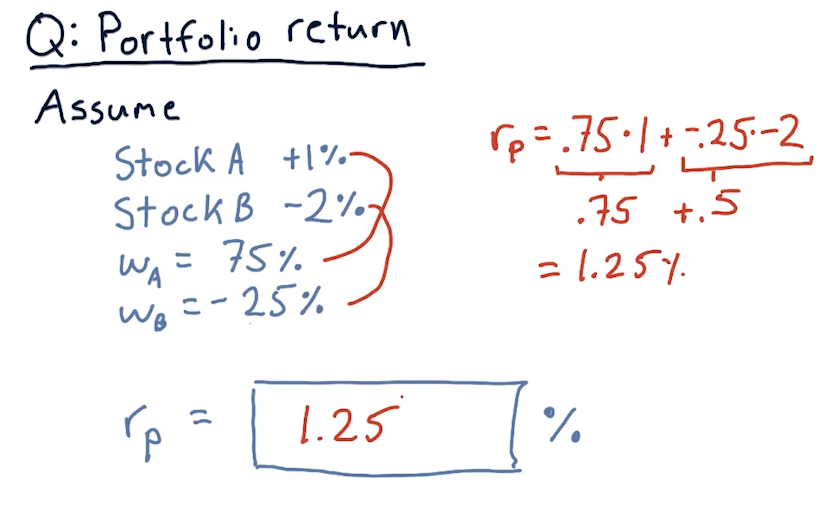 Q: Portfolio return
Assume
Stock A +1%
Stock B -2%
w_A = 75%
w_B = -25%
r_p = .75·1 + -.25·-2
.75 +.5
= 1.25%
r_p = 1.25 %